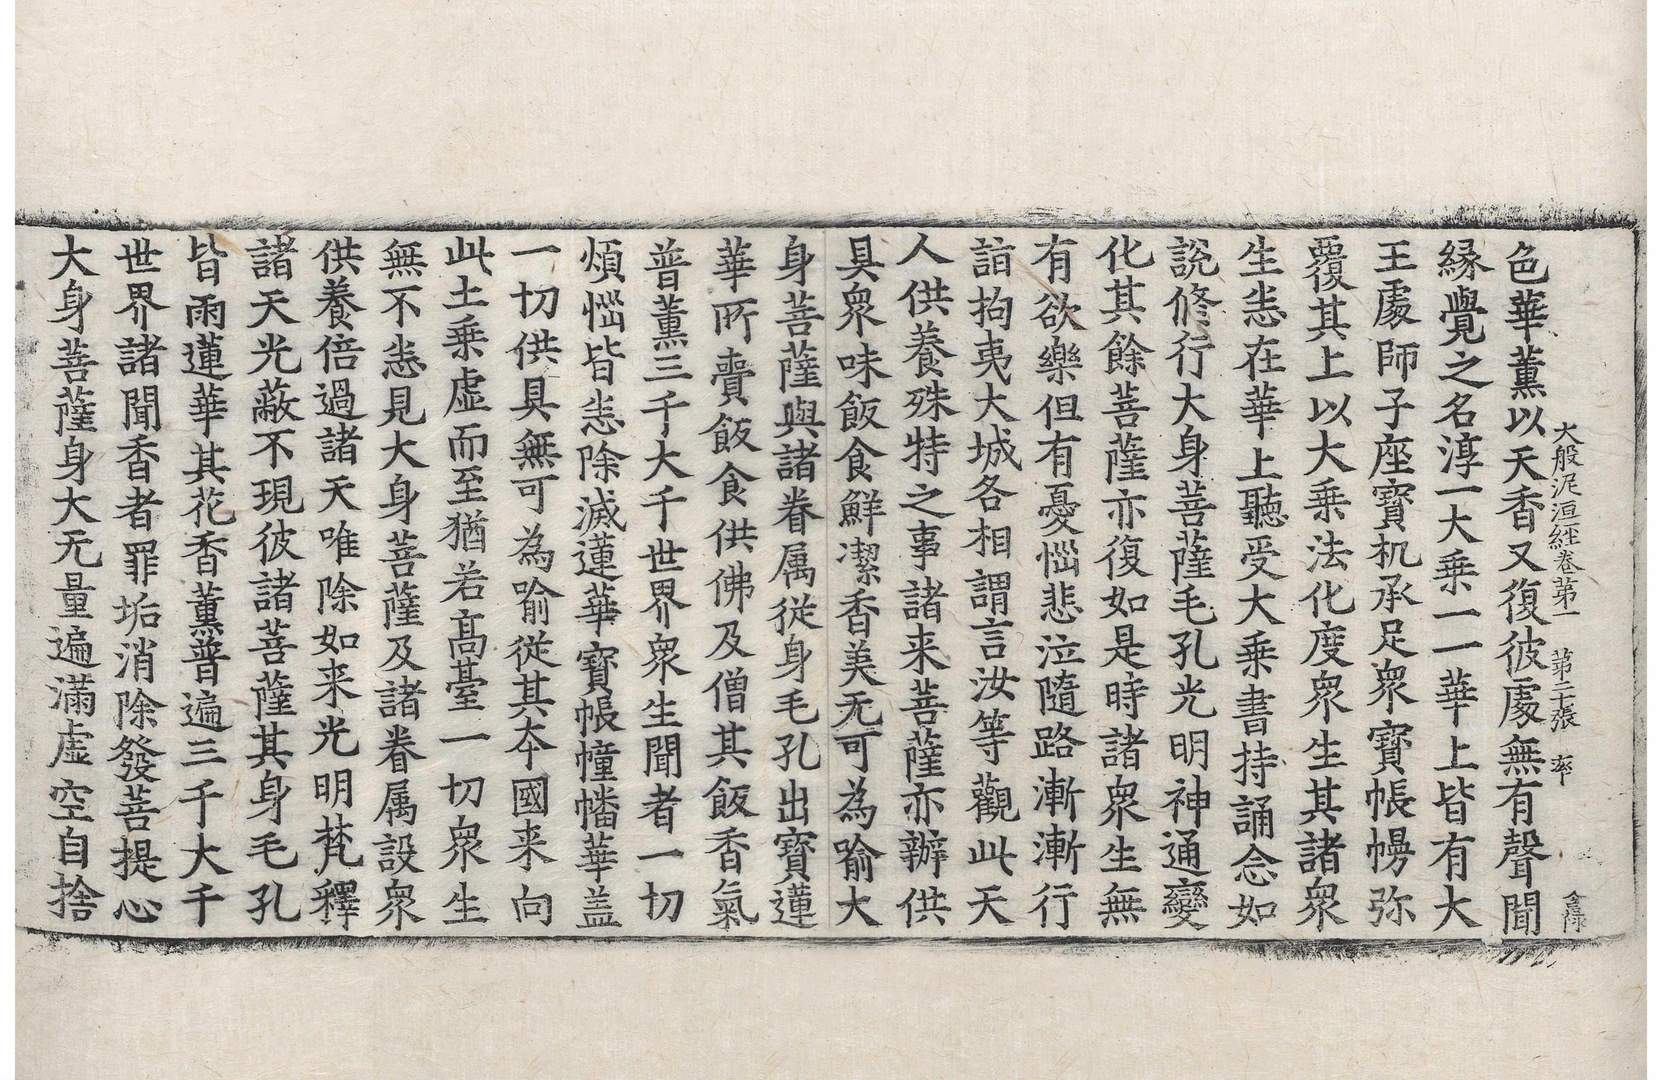 大般泥洹經卷第一 第二十張 率
色華薰以天香又復彼處無有聲聞
緣覺之名淳一大乘一一華上皆有大
王處師子座寶机承足衆寶帳幔弥
覆其上以大乘法化度衆生其諸衆
生恙在華上聽受大乘書持誦念如
說修行大身菩薩毛孔光明神通變
化其餘菩薩亦復如是時諸衆生無
有欲樂但有憂惱悲泣隨路漸漸行
詣拘夷大城各相謂言汝等觀此天
人供養殊特之事諸来菩薩亦辦供
具衆味飯食鮮潔香美无可為喻大
身菩薩與諸眷属從身毛孔出寶蓮
華所賷飯食供佛及僧其飯香氣
普薰三千大千世界衆生聞者一切
煩惱皆恙除滅蓮華寶帳幢幡華盖
一切供具無可為喻從其本國来向
此土乘虛而至猶若高臺一切衆生
無不恙見大身菩薩及諸眷属設衆
供養倍過諸天唯除如来光明梵釋
諸天光蔽不現彼諸菩薩其身毛孔
皆雨蓮華其花香薰普遍三千大千
世界諸聞香者罪垢消除發菩提心
大身菩薩身大无量遍滿虛空自捨